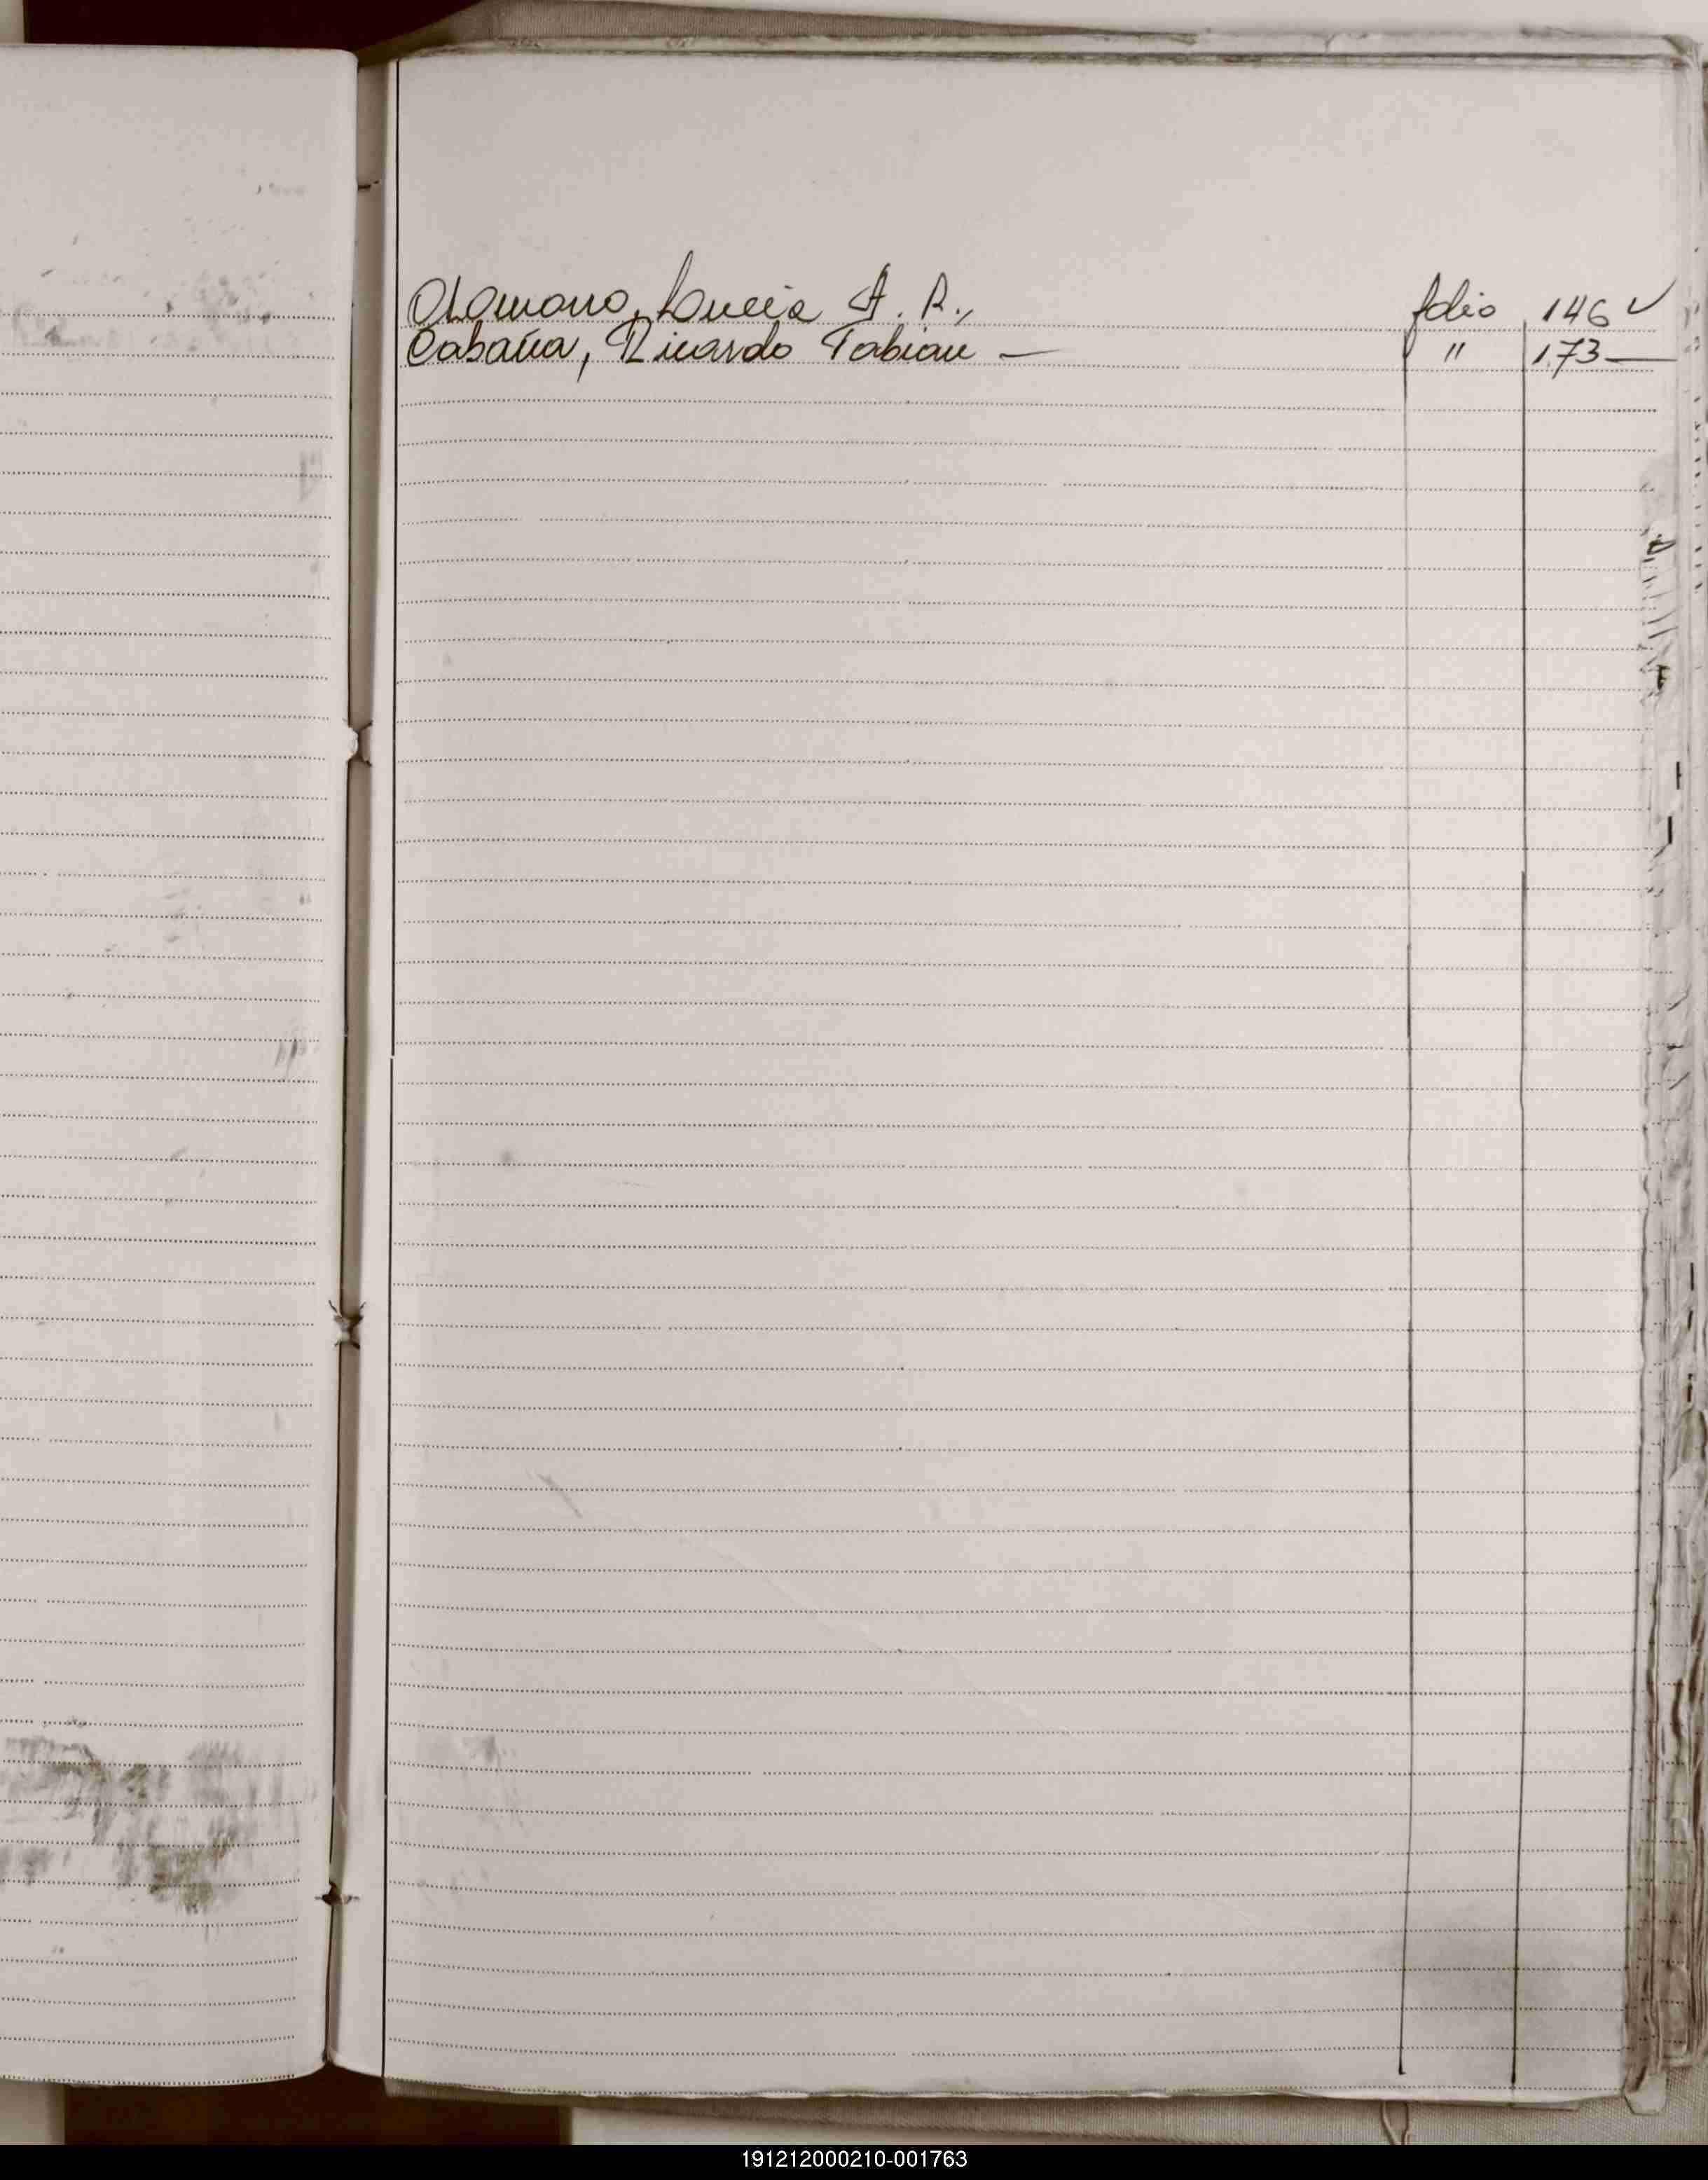 Alamano, Lucia A. R., folio 146 ✓
Cabaña, Ricardo Fabian — " 173 —
191212000210-001763